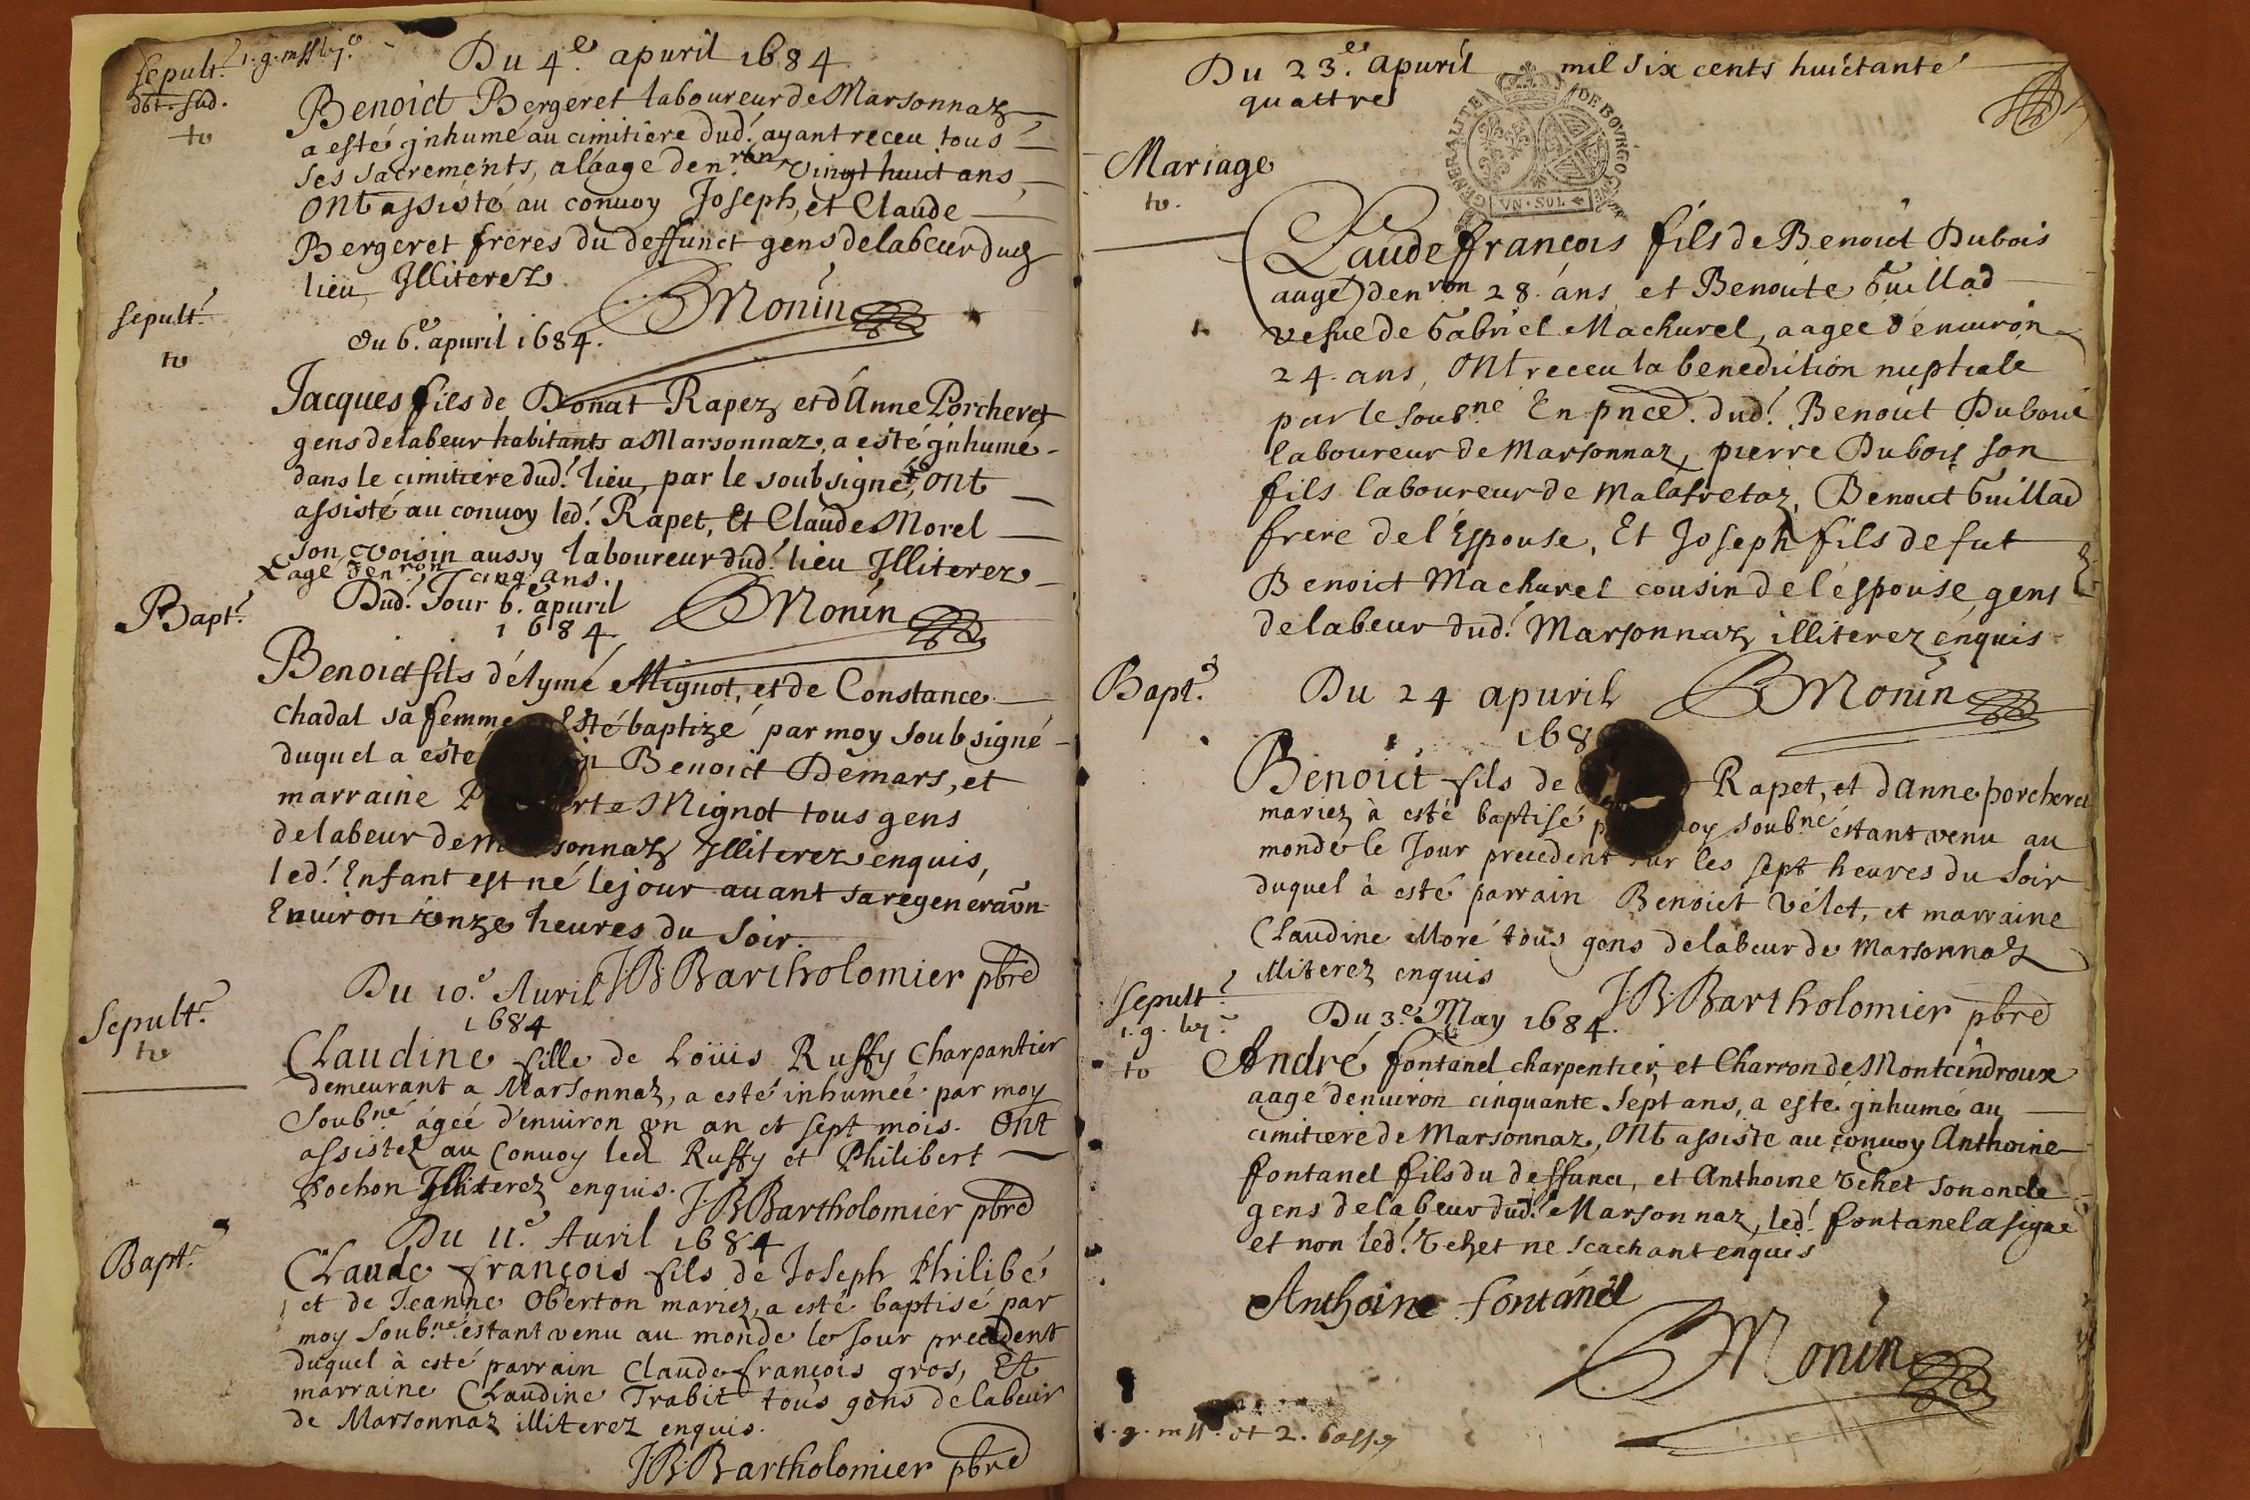 Sepult.
dbt. sud.
to
Du 4e apuril 1684
Benoict Bergeret laboureur de Marsonnaz
a esté jnhumé au cimitiere dud. ayant receu tous
ses sacrements, a láage den.ron vingt huict ans,
ont assisté au conuoy Joseph, et Claude
Bergeret freres du deffunct gens de labeur dud
lieu Jlliterez.
BMonin
Sepult.
to
du 6e apuril 1684.
Jacques fils de Donat Rapez et dAnne Porcheret
gens de labeur habitants a Marsonnaz, a esté jnhumé
dans le cimitiere dud. lieu, par le soubsigné, ont
assisté au conuoy led. Rapet, Et Claude Morel
son voisin aussy laboureur dud. lieu Jlliterez
x agé den.ron cinq ans.
BMonin
Bapt.
Dud. Jour 6e apuril
1684
Benoict fils déLymé Mignot, et de Constance
Chadal sa femme Esté baptizé par moy soubsigné
duquel a esté Benoict Demars, et
marraine Mignot tous gens
de labeur de Marsonnaz Jlliterez enquis,
led. Enfant est né le jour auant sa regeneraon
Enuiron onze heures du soir.
JB Bartholomier pbre
Sepult.
to
Du 10e Auril
1684
Claudine fille de Loüis Ruffy Charpantier
demeurant a Marsonnaz, a esté inhumée par moy
Soub.né ágéé d'enuiron vn an et sept mois. Ont
assistez au Conuoy led Ruffy et Philibert
Pochon Jlliterez enquis.
JB Bartholomier pbre
Bapt.
Du 11e Auril 1684
Claude françois fils de Joseph Philibé
et de Jeanne Oberton mariez, a esté baptisé par
moy soub.né estant venu au monde le Jour precedent
duquel à esté parrain Claude françois gros, Et
marraine Claudine Trabit tous gens de labeur
de Marsonnaz illiterez enquis.
JB Bartholomier pbre
Du 23e apuril mil six cents huictante
quattre
GENERALITE DE BOVRGOGNE
VN·SOL
Mariage
to.
Claude françois fils de Benoict Dubois
aagé denuron 28. ans et Benoite Guillad
vefue de Gabriel Machurel, aageé d'enuiron
24. ans, ont receu la benediction nuptiale
par le soub.né En pnce. dud. Benoict Dubois
laboureur de Marsonnaz, pierre Dubois son
fils laboureur de Malafretaz, Benoict Guillad
frere de l'Espouse, Et Joseph fils de fut
Benoict Machurel cousin de l'espouse, gens
de labeur dud. Marsonnaz illiterez enquis
BMonin
Bapt.
Du 24 apuril
168
Benoict fils de Rapet, et dAnne porcheret
mariez à esté baptisé moy soub.né estant venu au
monde le Jour precedent sur les sept heures du soir
duquel à esté parrain Benoict Vélet, et marraine
Claudine Moré tous gens de labeur de Marsonnaz
illiterez enquis
JB Bartholomier pbre
Sepult.
to
Du 3e May 1684.
André fontanel charpentier, et Charron de Montcindroux
aagé denuiron cinquante sept ans, a esté jnhumé au
cimitiere de Marsonnaz, Ont assisté au conuoy Anthoine
fontanel fils du deffunct, et Anthoine Vehet son oncle
gens de labeur dud. Marsonnaz, led. fontanel a signé
et non led. Vehet ne scachant enquis
Anthoine fontanel
BMonin